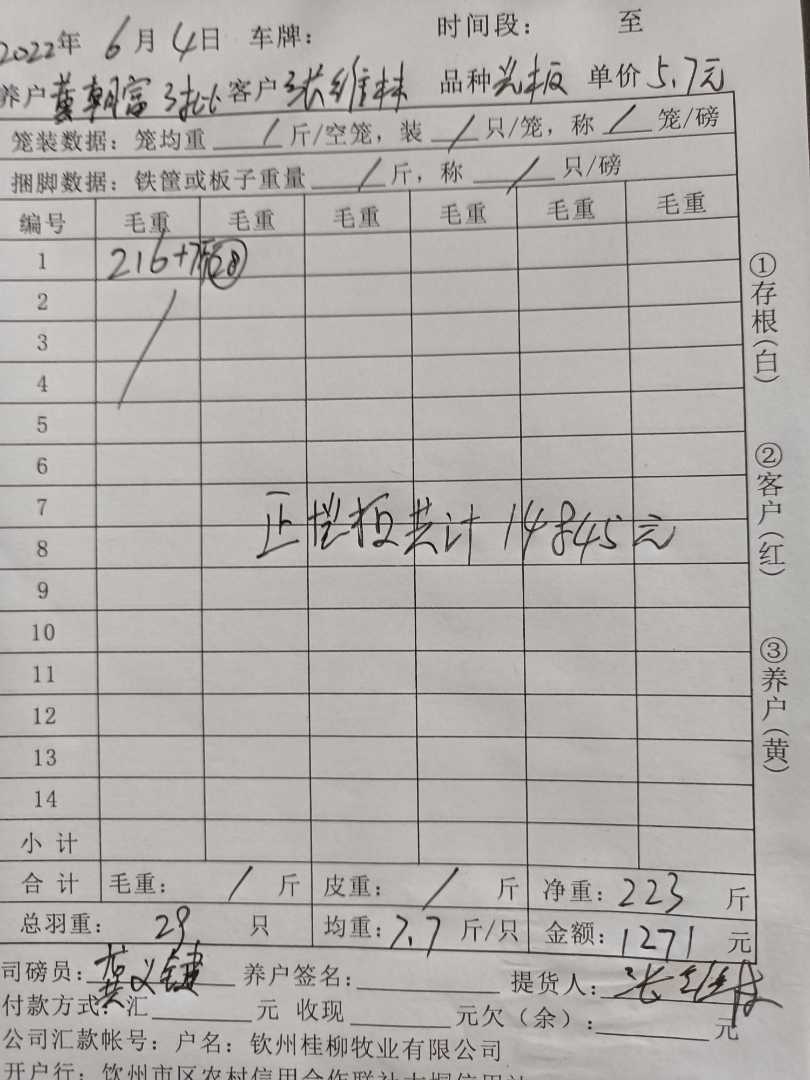 2022年 6月4日 车牌： 时间段： 至
养户 黄朝富 3批 客户 张维林 品种 光板 单价 5.7元
笼装数据：笼均重 / 斤/空笼，装 / 只/笼，称 / 笼/磅
捆脚数据：铁筐或板子重量 / 斤，称 / 只/磅
编号 毛重 毛重 毛重 毛重 毛重 毛重
1 216+7 28
2
3
4
5
6
7
正 板共计 14845元
8
9
10
11
12
13
14
小计
合计 毛重： / 斤 皮重： / 斤 净重：223 斤
总羽重： 29 只 均重：7.7 斤/只 金额：1271 元
司磅员：黄义键 养户签名： 提货人：张维林
付款方式：汇 元 收现 元欠（余）： 元
公司汇款帐号：户名：钦州桂柳牧业有限公司
开户行：钦州市区农村信用合作联社大垌信用社
①存根(白)
②客户(红)
③养户(黄)